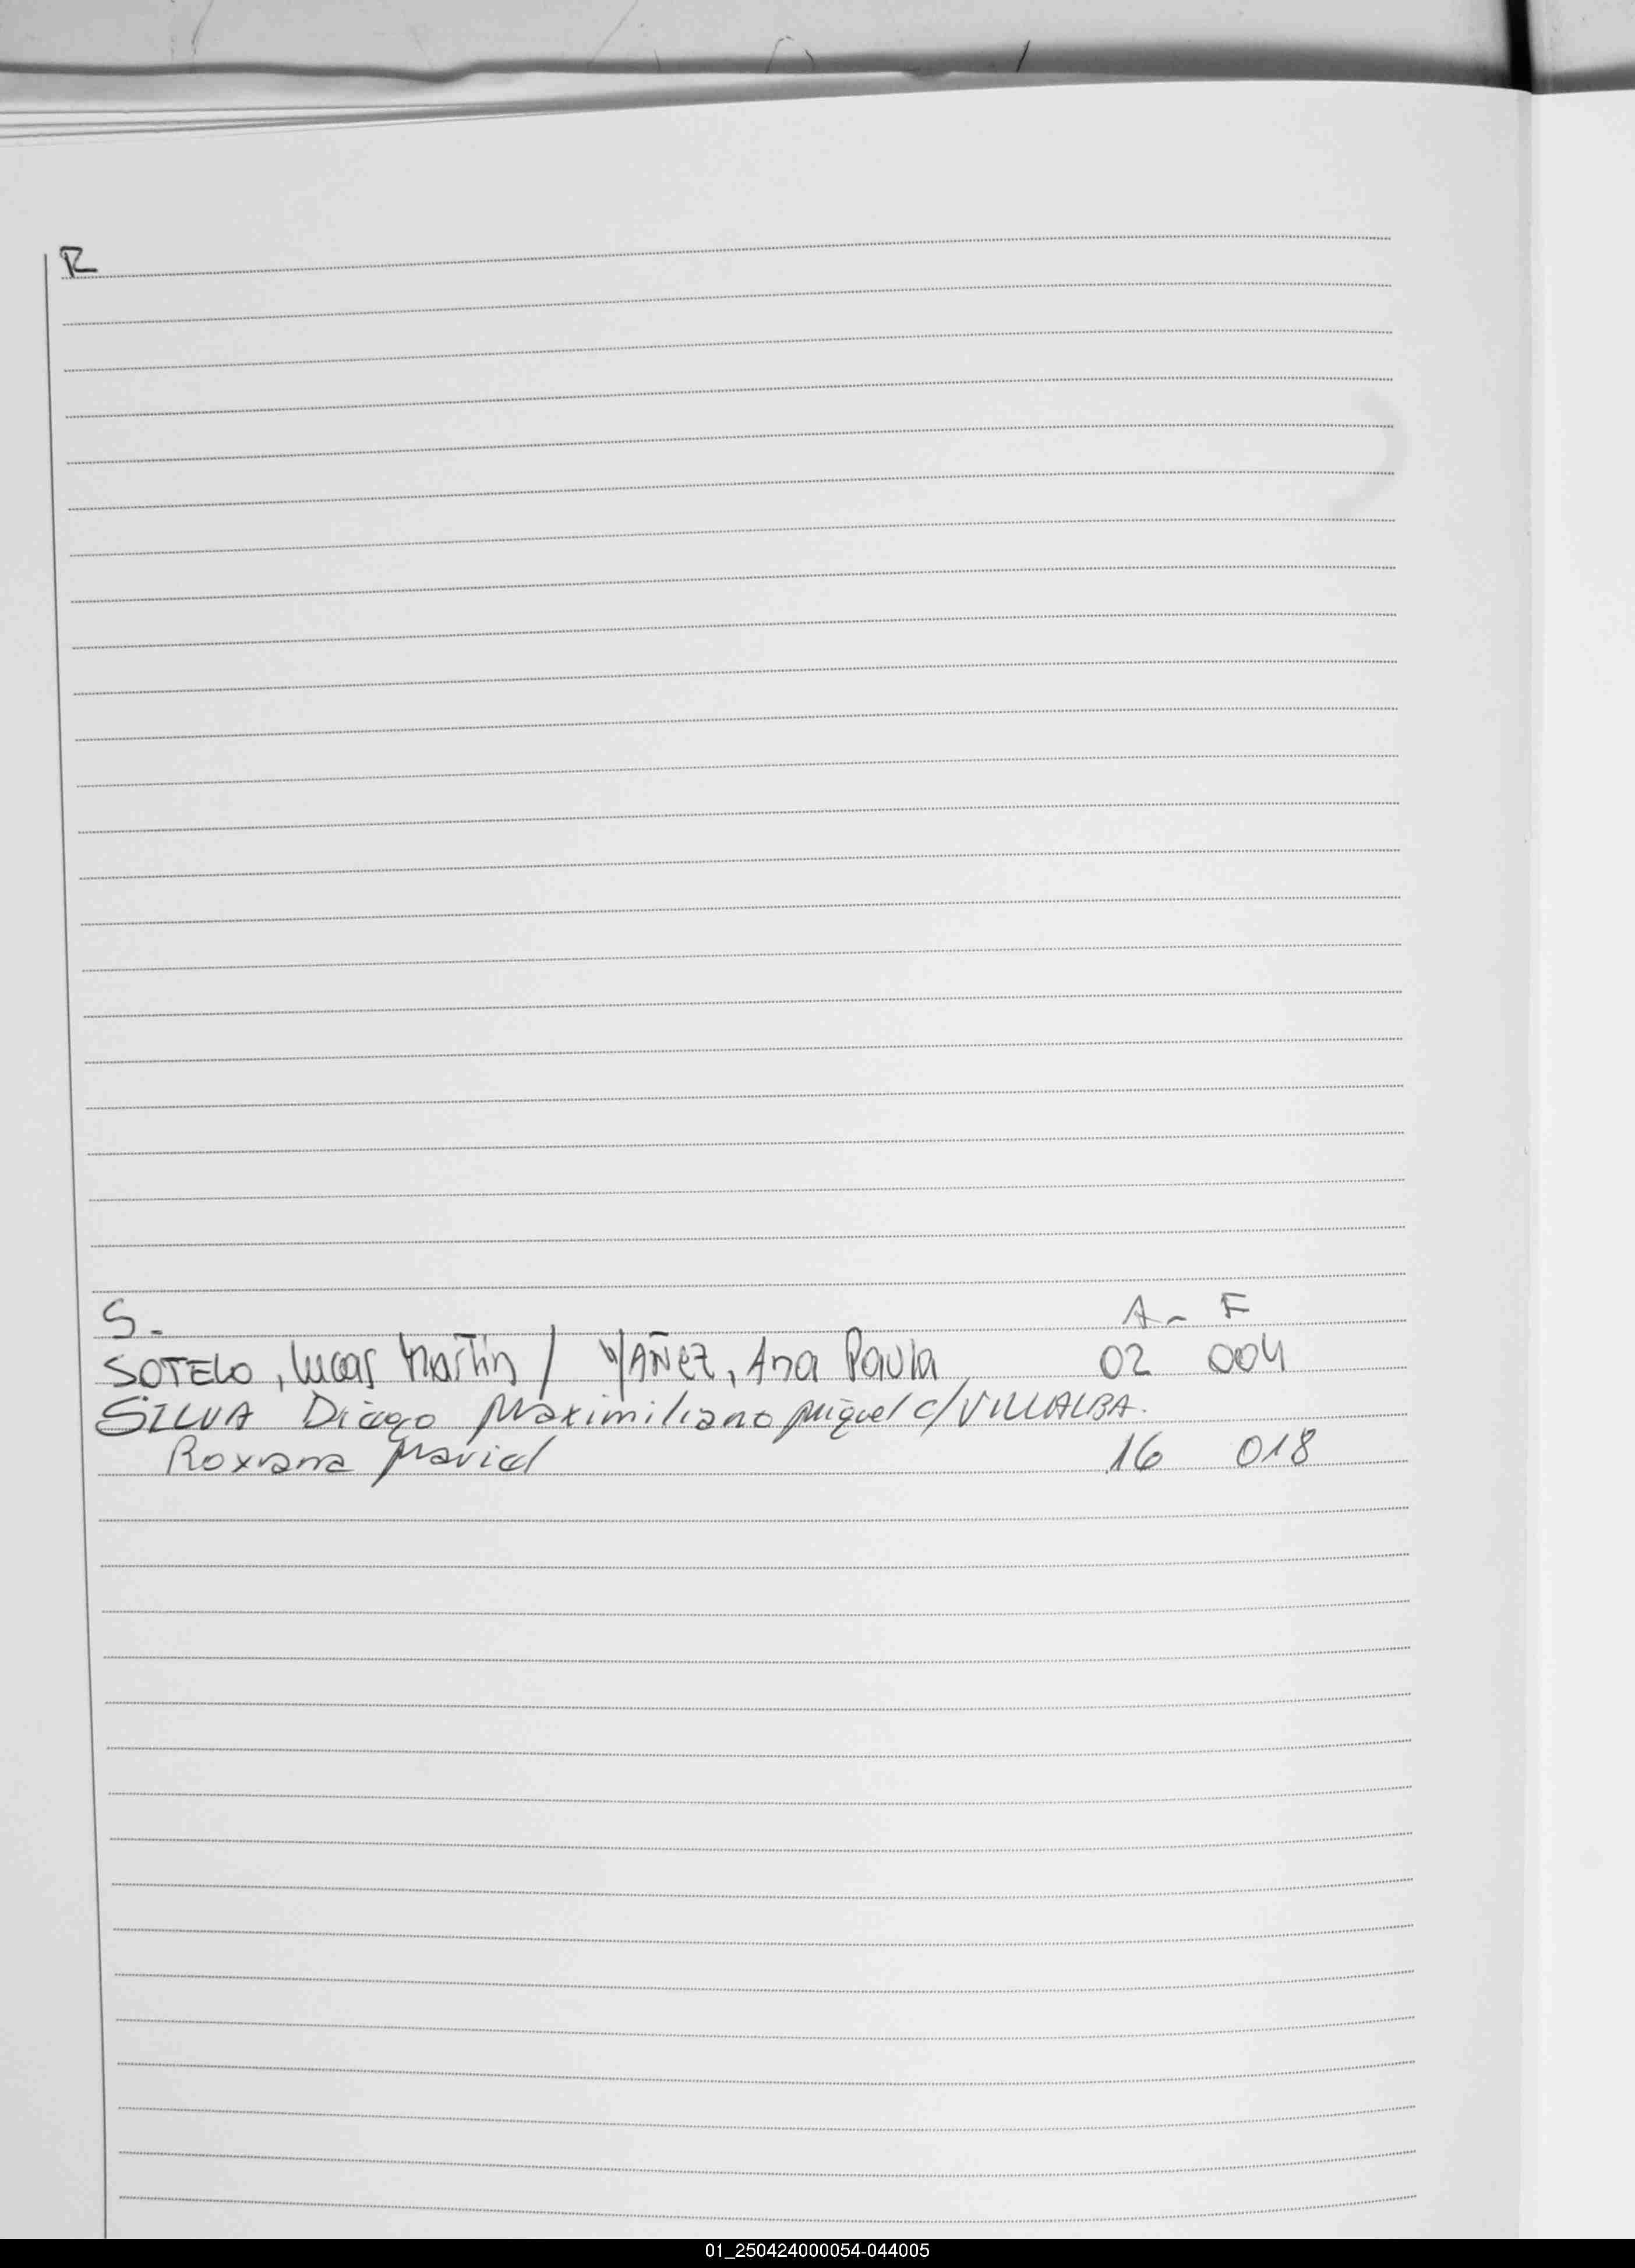 R
S. A - F
SOTELO, Lucas Martin / YAÑEZ, Ana Paula 02 004
SILVA Diego Maximiliano Miguel c/ VILLALBA.
Roxana Mariel 16 018
01_250424000054-044005